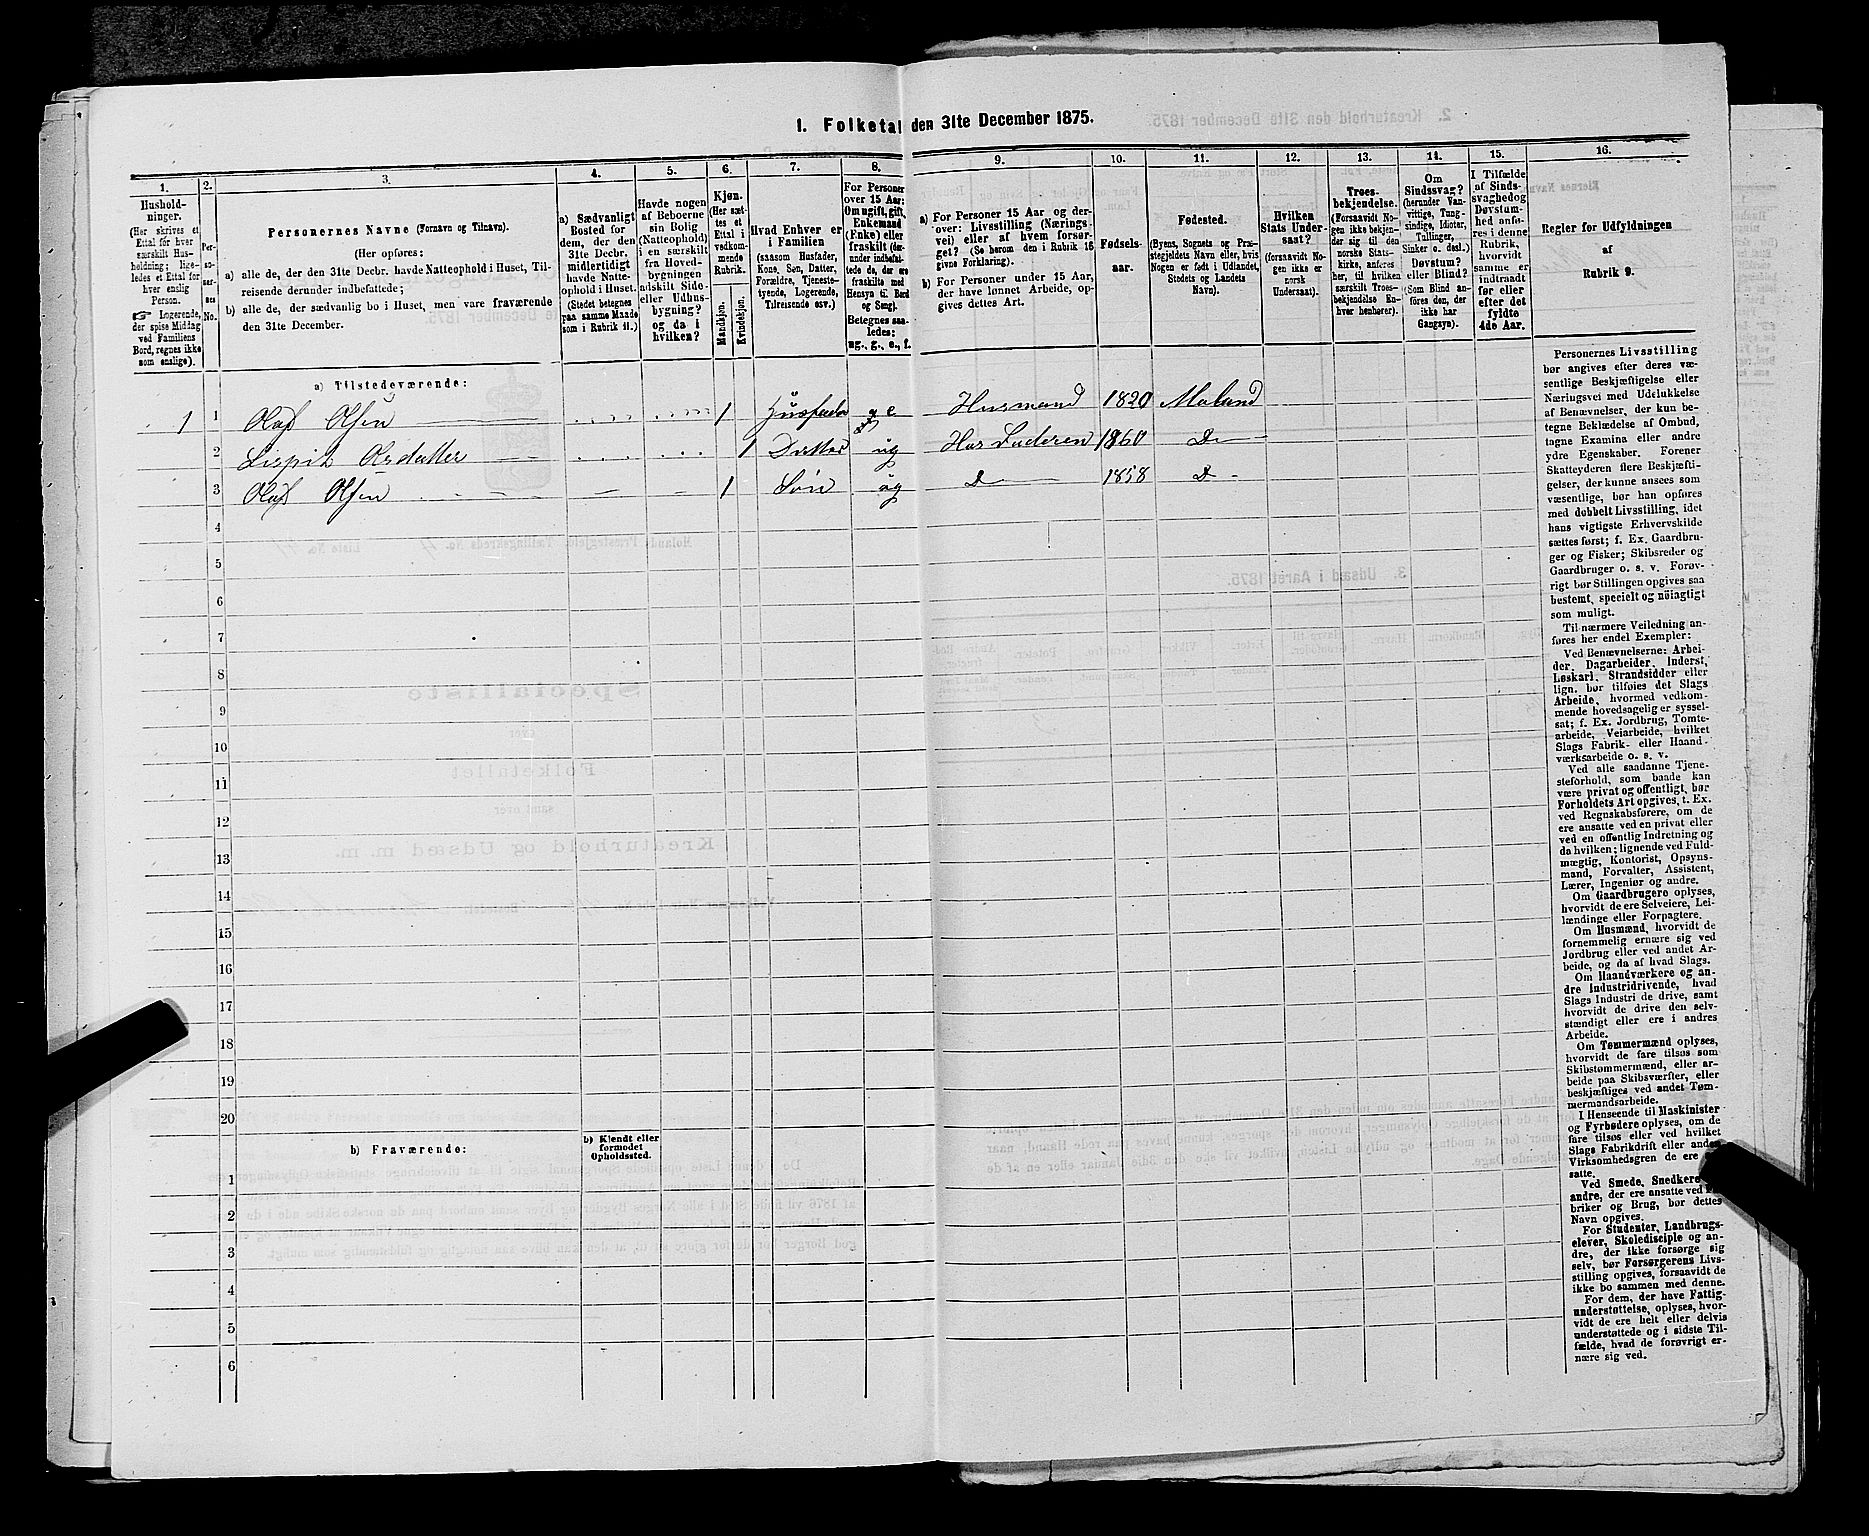 1. Folketal den 31te December 1875.
1.
2.
3.
4.
5.
6.
7.
8.
9.
10.
11.
12.
13.
14.
15.
16.
Hushold-
ninger.
(Her skrives et
Ettal for hver
særskilt Hus-
holdning; lige-
ledes et Ettal for
hver enslig
Person.
☞ Logerende,
der spise Middag
ved Familiens
Bord, regnes ikke
som enslige).
Per-
so-
ner-
nes
No.
Personernes Navne (Fornavn og Tilnavn).
(Her opføres:
a) alle de, der den 31te Decbr. havde Natteophold i Huset, Til-
reisende derunder indbefattede;
b) alle de, der sædvanlig bo i Huset, men vare fraværende
den 31te December.
a) Sædvanligt
Bosted for
dem, der den
31te Decbr.
midlertidigt
havde Natte-
ophold i Huset.
(Stedet betegnes
paa samme Maade
som i Rubrik 11.)
Havde nogen
af Beboerne
sin Bolig
(Natteophold)
i en særskilt
fra Hoved-
bygningen
adskilt Side-
eller Udhus-
bygning?
og da i
hvilken?
Kjøn.
(Her sæt-
tes et
Ettal i
vedkom-
mende
Rubrik.
Mandkjøn.
Kvindekjøn.
Hvad Enhver er
i Familien
(saasom Husfader,
Kone, Søn, Datter,
Forældre, Tjeneste-
tyende, Logerende,
Tilreisende osv.)
For Personer
over 15 Aar:
Om ugift, gift,
Enkemand
(Enke) eller
fraskilt (der-
under indbefat-
tede de, der ere
fraskilte med
Hensyn til Bord
og Seng).
Betegnes saa-
ledes:
ug., g., e., f.
a) For Personer 15 Aar og der-
over: Livsstilling (Nærings-
vei) eller af hvem forsør-
get? (Se herom den i Rubrik 16
givne Forklaring).
b) For Personer under 15 Aar,
der have lønnet Arbeide, op-
gives dettes Art.
Fødsels-
aar.
Fødested.
(Byens, Sognets og Præ-
stegjeldets Navn eller, hvis
Nogen er født i Udlandet,
Stedets og Landets
Navn).
Hvilken
Stats Under-
saat?
(forsaavidt No-
gen ikke er
norsk
Undersaat).
Troes-
bekjendelse.
(Forsaavidt No-
gen ikke bekjen-
der sig til den
norske Stats-
kirke, anføres
her, til hvilken
særskilt Troes-
bekjendelse En-
hver henhører).
Om
Sindssvag?
(herunder Van-
vittige, Tung-
sindige, Idioter,
Tullinger,
Sinker o. desl.).
Døvstum?
eller Blind?
(Som Blind an-
føres den, der
ikke har
Gangsyn).
I Tilfælde
af Sinds-
svaghed og
Døvstum-
hed anfø-
res i denne
Rubrik,
hvorvidt
samme er
indtraadt
før eller
efter det
fyldte
4de Aar.
Regler for Udfyldningen
af
Rubrik 9.
a) Tilstedeværende:
1 1 Olaf Olsen 1 Husfader e Husmand 1820 Moland
2 Lispit Olsdatter 1 Datter ug Hos Faderen 1860 D
3 Olaf Olsen 1 Søn ug D 1858 D
4
5
6
7
8
9
10
11
12
13
14
15
16
17
18
19
20
b) Fraværende:
b) Kjendt eller
formodet
Opholdssted.
1
2
3
4
5
6
Personernes Livsstilling
bør angives efter deres væ-
sentlige Beskjæftigelse eller
Næringsvei med Udelukkelse
af Benævnelser, der kun be-
tegne Beklædelse af Ombud,
tagne Examina eller andre
ydre Egenskaber. Forener
Skatteyderen flere Beskjæfti-
gelser, der kunne ansees som
væsentlige, bør han opføres
med dobbelt Livsstilling, idet
hans vigtigste Erhvervskilde
sættes først; f. Ex. Gaardbru-
ger og Fisker; Skibsreder og
Gaardbruger o. s. v. Forøv-
rigt bør Stillingen opgives saa
bestemt, specielt og nöiagtigt
som muligt.
Til nærmere Veiledning an-
føres her endel Exempler:
Ved Benævnelserne: Arbei-
der, Dagarbeider, Inderst,
Løskarl, Strandsidder eller
lign. bør tilføies det Slags
Arbeide, hvormed vedkom-
mende hovedsagelig er syssel-
sat; f. Ex. Jordbrug, Tomte-
arbeide, Veiarbeide, hvilket
Slags Fabrik- eller Haand-
værksarbeide o. s. v.
Ved alle saadanne Tjene-
steforhold, som baade kan
være privat og offentligt, bør
Forholdets Art opgives, t. Ex.
ved Regnskabsførere, om de
ere ansatte ved en privat eller
ved en offentlig Indretning og
da hvilken; lignende ved Fuld-
mægtig, Kontorist, Opsyns-
mand, Forvalter, Assistent,
Lærer, Ingeniør og andre.
Om Gaardbrugere oplyses,
hvorvidt de ere Selveiere, Lei-
lændinge eller Forpagtere.
Om Husmænd, hvorvidt de
fornemmelig ernære sig ved
Jordbrug eller ved andet Ar-
beide, og da af hvad Slags.
Om Haandværkere og an-
dre Industridrivende, hvad
Slags Industri de drive, samt
hvorvidt de drive den selv-
stændigt eller ere i andres
Arbeide.
Om Tømmermænd oplyses,
hvorvidt de fare tilsøs som
Skibstømmermænd, eller ar-
beide paa Skibsværfter, eller
beskjæftiges ved andet Tøm-
mermandsarbeide.
I Henseende til Maskinister
og Fyrbødere oplyses, om de
fare tilsøs eller ved hvilket
Slags Fabrikdrift eller anden
Virksomhedsgren de ere
satte.
Ved Smede, Snedkere
andre, der ere ansatte ved
briker og Brug, bør dettes
Navn opgives.
For Studenter, Landbrugs-
elever, Skoledisciple og an-
dre, der ikke forsørge sig
selv, bør Forsørgerens Livs-
stilling opgives, forsaavidt de
ikke bo sammen med denne.
For dem, der have Fattig-
understøttelse, oplyses, hvor-
vidt de ere helt eller delvis
understøttede og i sidste Til-
fælde, hvad de forøvrigt er-
nære sig ved.